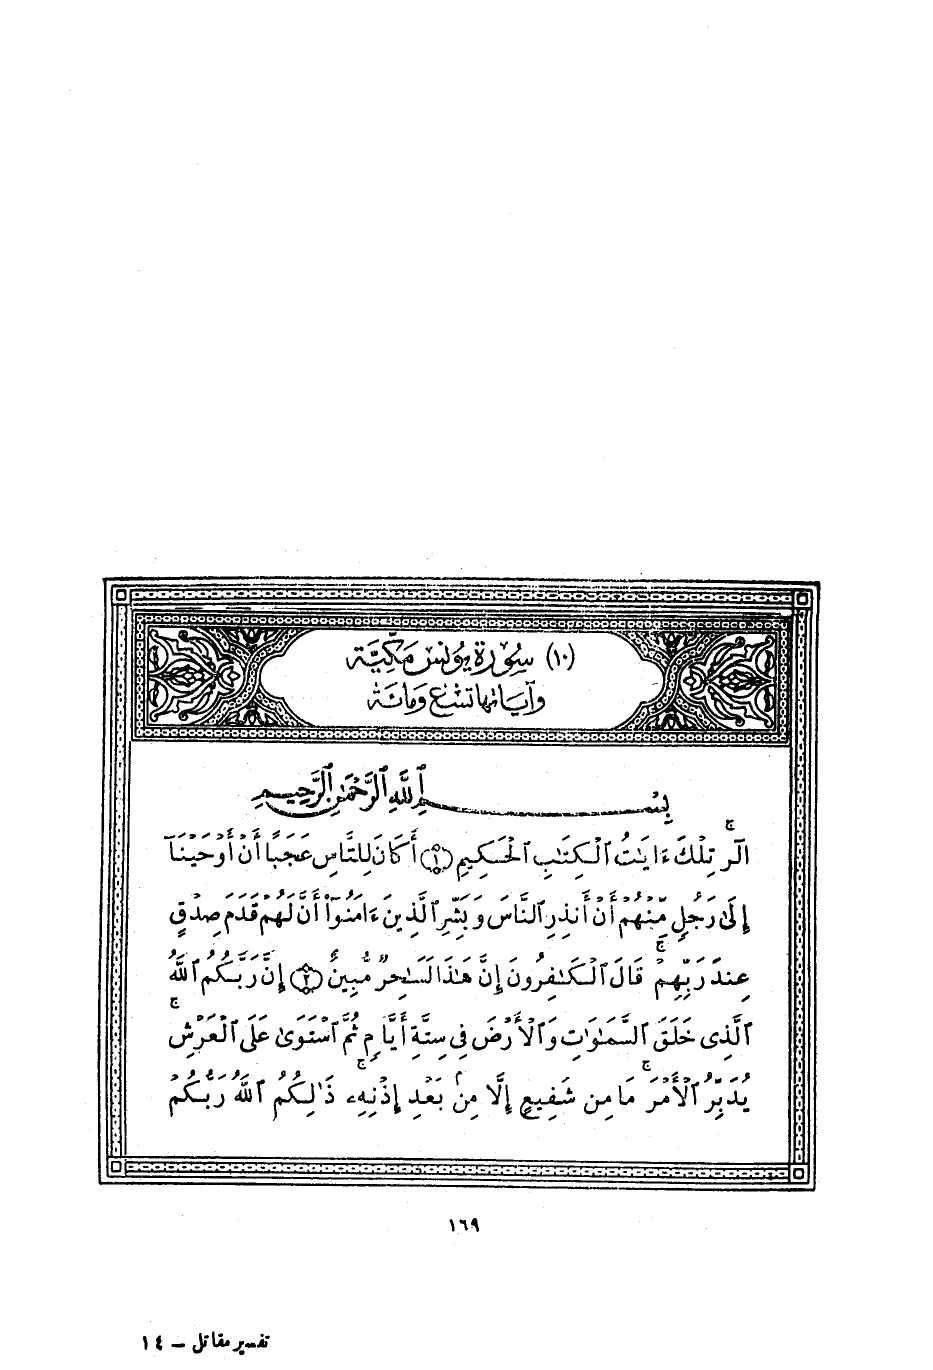 (١٠) سُورَة يُونس مَكِّيَّة
وآياتها تسْع ومائة
بِسْمِ ٱللَّهِ ٱلرَّحْمَٰنِ ٱلرَّحِيمِ
الٓر ۚ تِلْكَ ءَايَٰتُ ٱلْكِتَٰبِ ٱلْحَكِيمِ (١) أَكَانَ لِلنَّاسِ عَجَبًا أَنْ أَوْحَيْنَآ
إِلَىٰ رَجُلٍ مِّنْهُمْ أَنْ أَنذِرِ ٱلنَّاسَ وَبَشِّرِ ٱلَّذِينَ ءَامَنُوٓا۟ أَنَّ لَهُمْ قَدَمَ صِدْقٍ
عِندَ رَبِّهِمْ ۚ قَالَ ٱلْكَٰفِرُونَ إِنَّ هَٰذَا لَسَٰحِرٌ مُّبِينٌ (٢) إِنَّ رَبَّكُمُ ٱللَّهُ
ٱلَّذِى خَلَقَ ٱلسَّمَٰوَٰتِ وَٱلْأَرْضَ فِى سِتَّةِ أَيَّامٍ ثُمَّ ٱسْتَوَىٰ عَلَى ٱلْعَرْشِ ۚ
يُدَبِّرُ ٱلْأَمْرَ ۚ مَا مِن شَفِيعٍ إِلَّا مِنۢ بَعْدِ إِذْنِهِۦ ۚ ذَٰلِكُمُ ٱللَّهُ رَبُّكُمْ
١٦٩
تفسير مقاتل – ١٤